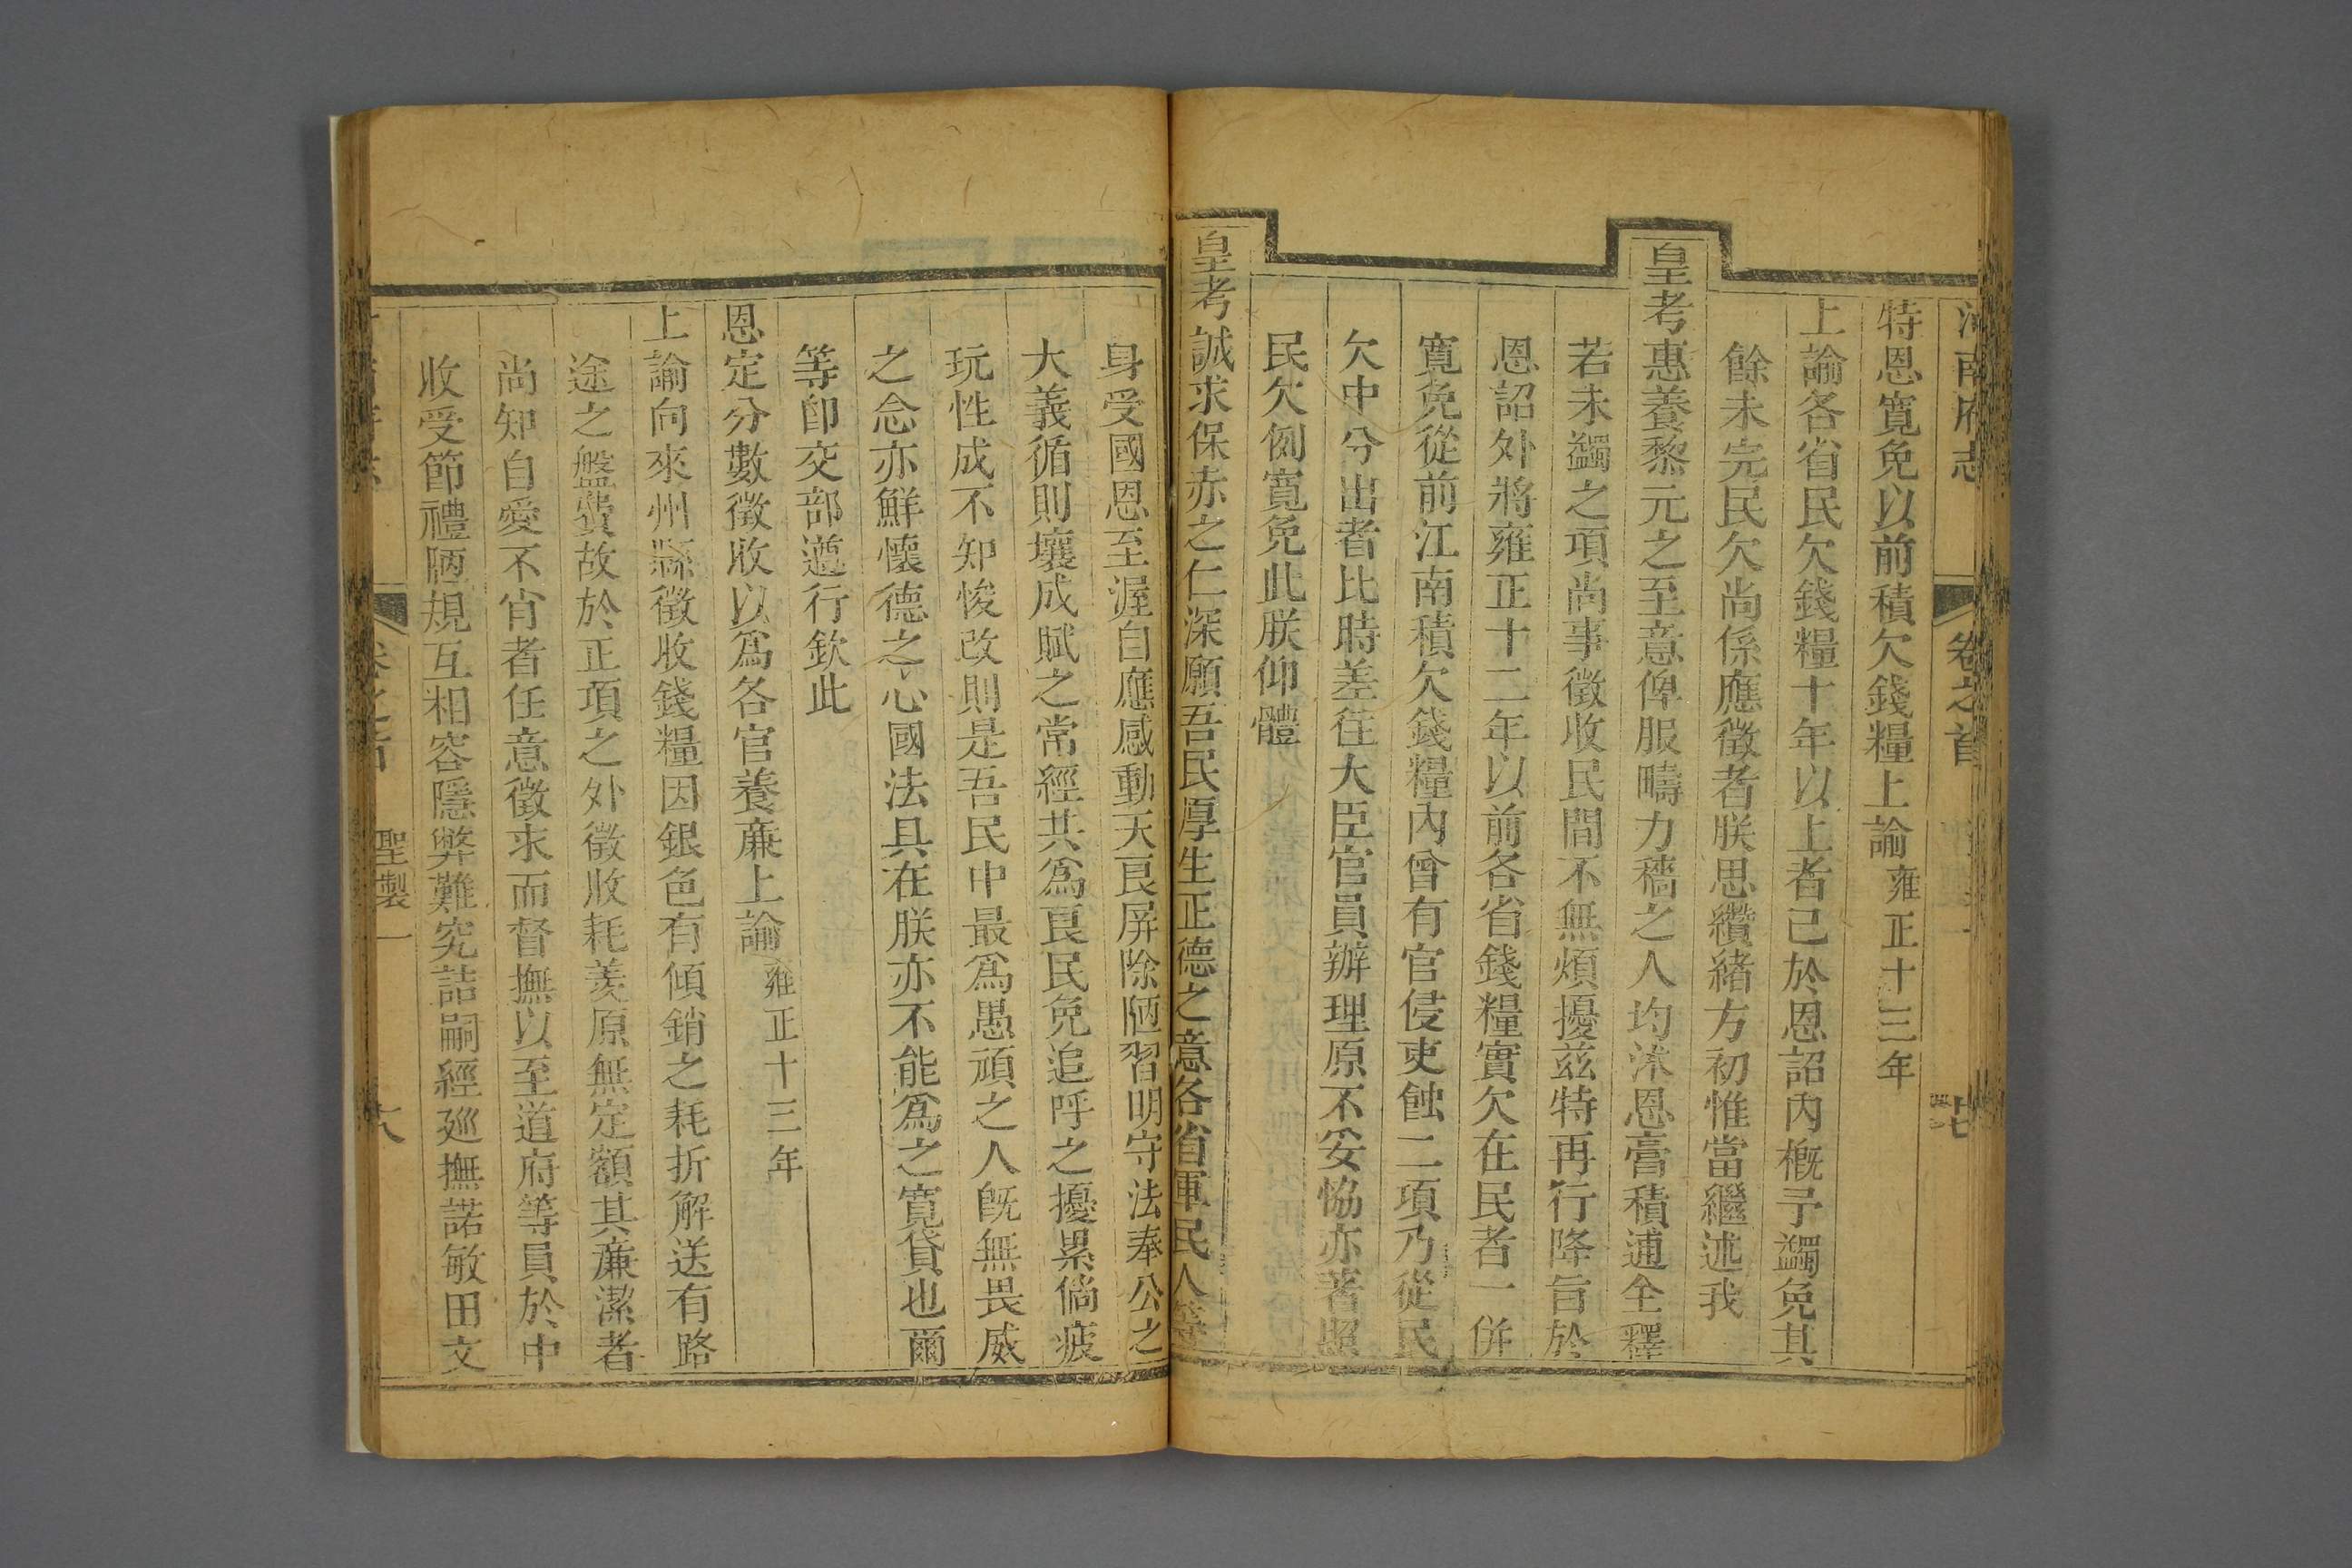 河南府志 卷之首
特恩寬免以前積欠錢糧上諭雍正十三年
上諭各省民欠錢糧十年以上者已於恩詔內槪予蠲免其
餘未完民欠尚係應徵者朕思纘緒方初惟當繼述我
皇考惠養黎元之至意俾服疇力穡之人均沐恩膏積逋全釋
若未蠲之項尚事徵收民間不無煩擾兹特再行降旨於
恩詔外將雍正十二年以前各省錢糧實欠在民者一併
寬免從前江南積欠錢糧內曾有官侵吏蝕二項乃從民
欠中分出者比時差往大臣官員辦理原不妥恊亦著照
民欠例寬免此朕仰體
皇考誠求保赤之仁深願吾民厚生正德之意各省軍民人等
身受國恩至渥自應感動天良屏除陋習明守法奉公之
大義循則壤成賦之常經共爲良民免追呼之擾累倘疲
玩性成不知悛改則是吾民中最爲愚頑之人旣無畏威
之念亦鮮懷德之心國法具在朕亦不能爲之寬貸也爾
等卽交部遵行欽此
恩定分數徵收以爲各官養廉上諭雍正十三年
上諭向來州縣徵收錢糧因銀色有傾銷之耗折解送有路
途之盤費故於正項之外徵收耗羡原無定額其廉潔者
尚知自愛不肖者任意徵求而督撫以至道府等員於中
收受節禮陋規互相容隱弊難究詰嗣經廵撫諾敏田文
聖製一